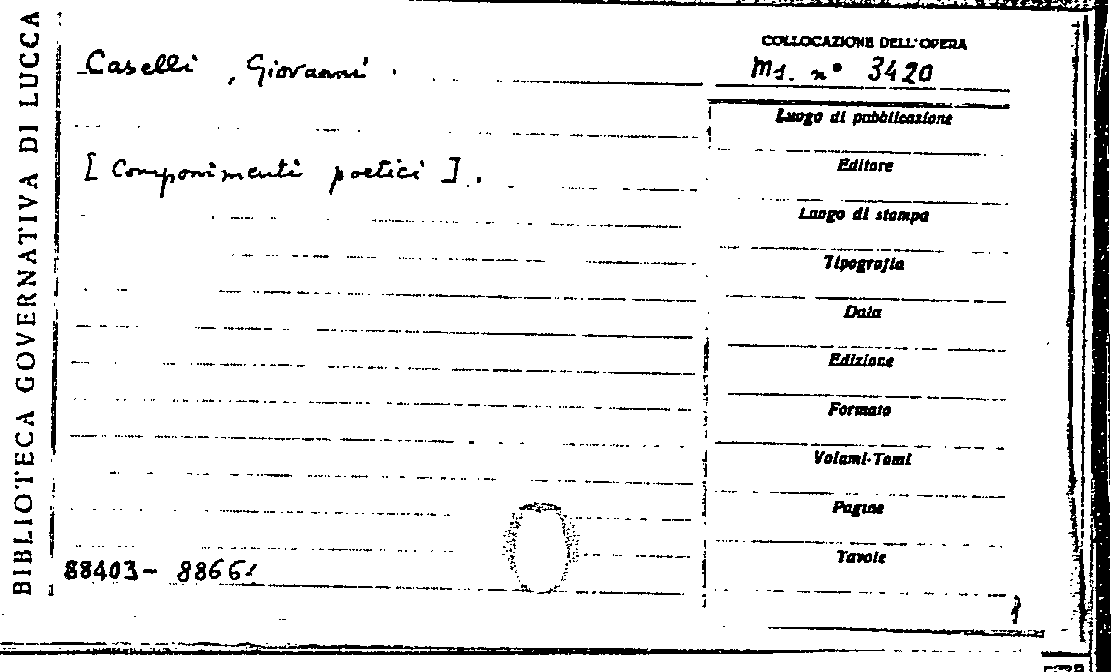 BIBLIOTECA GOVERNATIVA DI LUCCA
Caselli, Giovanni.
[Componimenti poetici].
88403- 88661
COLLOCAZIONE DELL'OPERA
Ms. n° 3420
Luogo di pubblicazione
Editore
Luogo di stampa
Tipografia
Data
Edizione
Formato
Volumi-Tomi
Pagine
Tavole